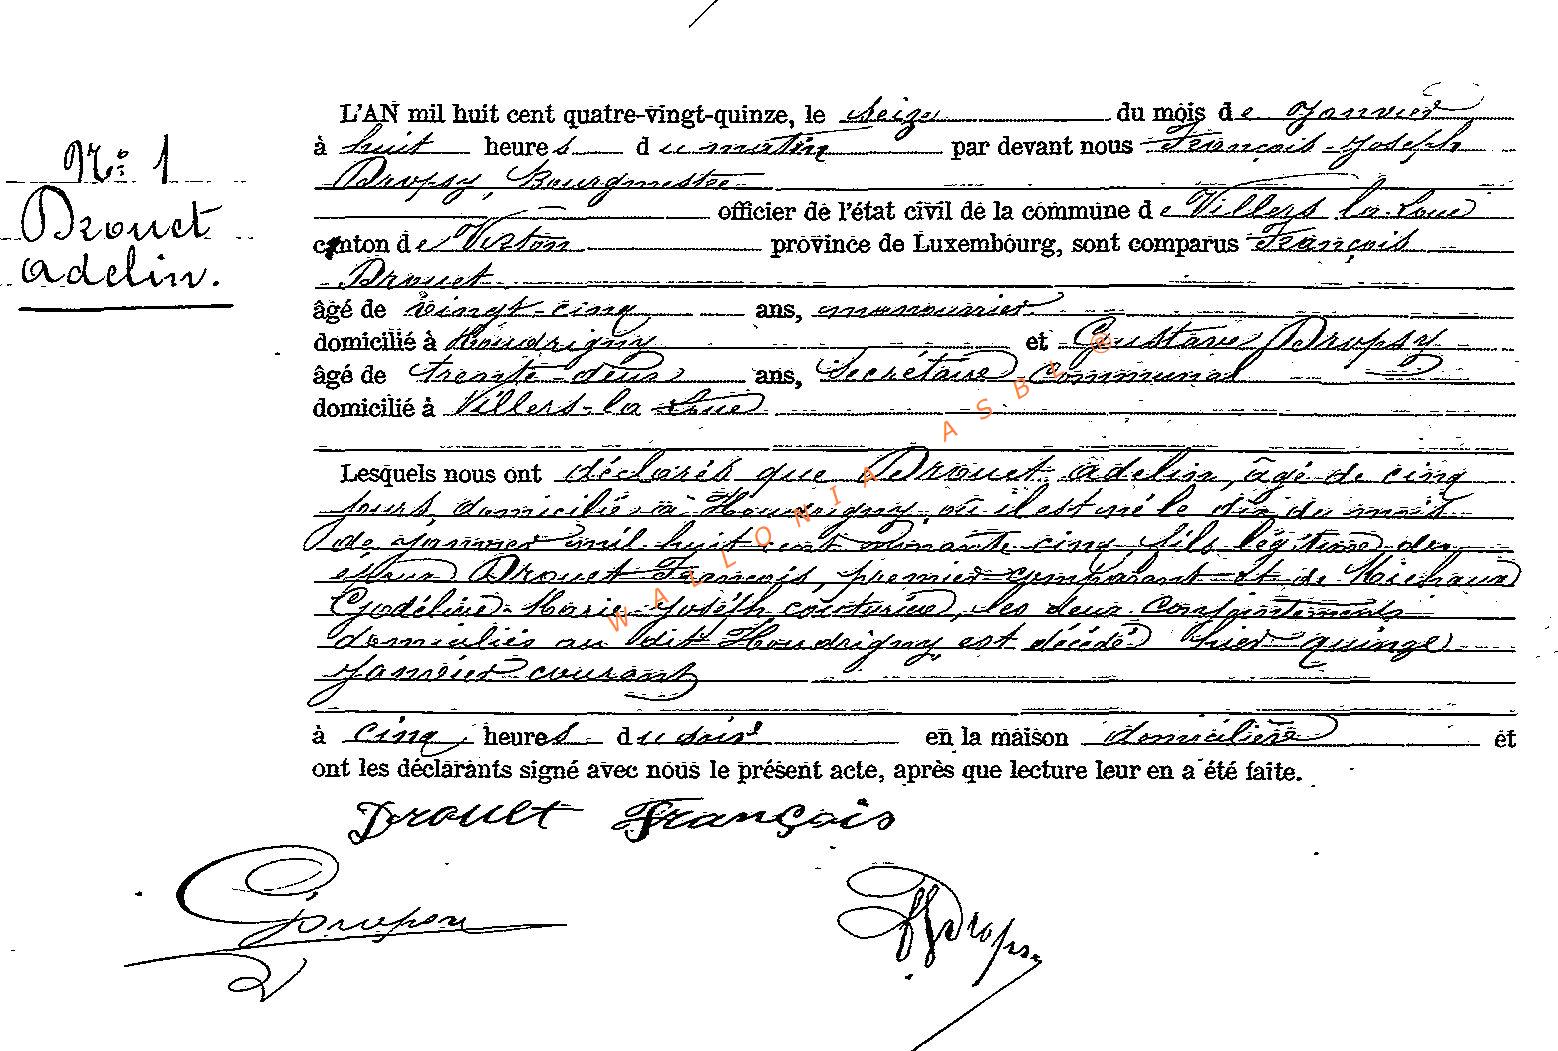 Nº 1
Drouet
Adelin.
L'AN mil huit cent quatre-vingt-quinze, le seize du mois de Janvier
à huit heures du matin par devant nous François-Joseph
Dropsy, Bourgmestre
officier de l'état civil de la commune de Villers-la-Loue
canton de Virton province de Luxembourg, sont comparus François
Drouet
âgé de vingt-cinq ans, manouvrier
domicilié à Houdrigny et Gustave Dropsy
âgé de trente-deux ans, Secrétaire communal
domicilié à Villers-la-Loue
Lesquels nous ont déclarés que Drouet Adelin, âgé de cinq
jours, domicilié à Houdrigny, où il est né le dix du mois
de Janvier mil huit cent nonante cinq, fils légitime des
époux Drouet François, premier comparant et de Michaux
Godeline-Marie-Joseph, couturière, les deux conjointement
domiciliés au dit Houdrigny est décédé hier quinze
Janvier courant
à cinq heures du soir en la maison domicilière et
ont les déclarants signé avec nous le présent acte, après que lecture leur en a été faite.
Drouet François
GDropsy
FJDropsy
WALLONIA ASBL ®